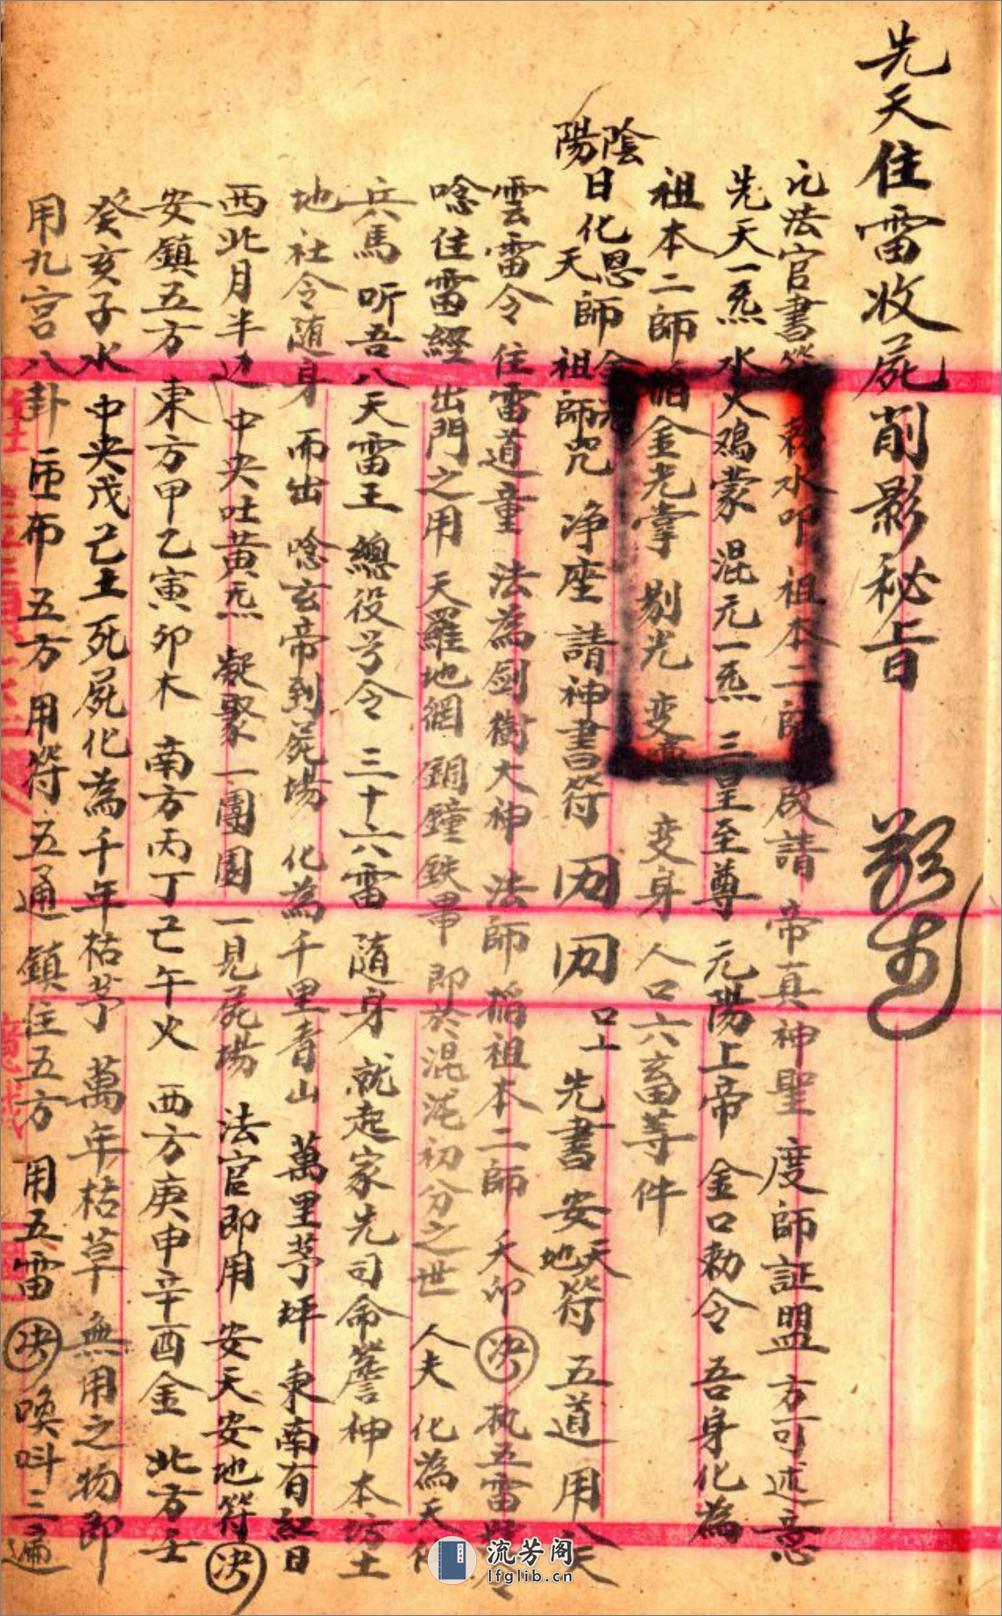 先天住雷收屍削影秘旨
凡法官書符 敕水叩祖本二師啟請 帝真神聖 度師証盟方可述意
先天一炁 水火鴻蒙 混元一炁 三皇至尊 元陽上帝 金口勅令 吾身化為
祖本二師 掐金光掌 剔光 变 变身 人口六畜等件
陰陽日化恩師 天師 祖師咒 净座 請神書符 先書安天地符 五道 用 天
雲雷令 住雷道童 法為劍樹大神 法師掐祖本二師 天卯決 执五雷
唸住雷經 出門之用 天羅地網 銅鐘鉄 即於混沌初分之世 人夫化為天
兵馬听吾 八天雷王 總役号令 三十六雷 随身就起 家先司命 詹神 本坊土
地社令随身 而出 唸玄帝到屍場 化為千里青山 萬里茅坪 東南有紅日
西北月半边 中央吐黃炁 凝聚一團圆 一見屍場 法官即用 安天安地符決
安鎮五方 東方甲乙寅卯木 南方丙丁己午火 西方庚申辛酉金 北方壬
癸亥子水 中央戊己土 死屍化為千年枯茅 萬年枯草 無用之物 即
用九宮八卦 匝布五方 用符五通 鎮住五方 用五雷決 唤呌三遍
流芳阁
lfglib.cn